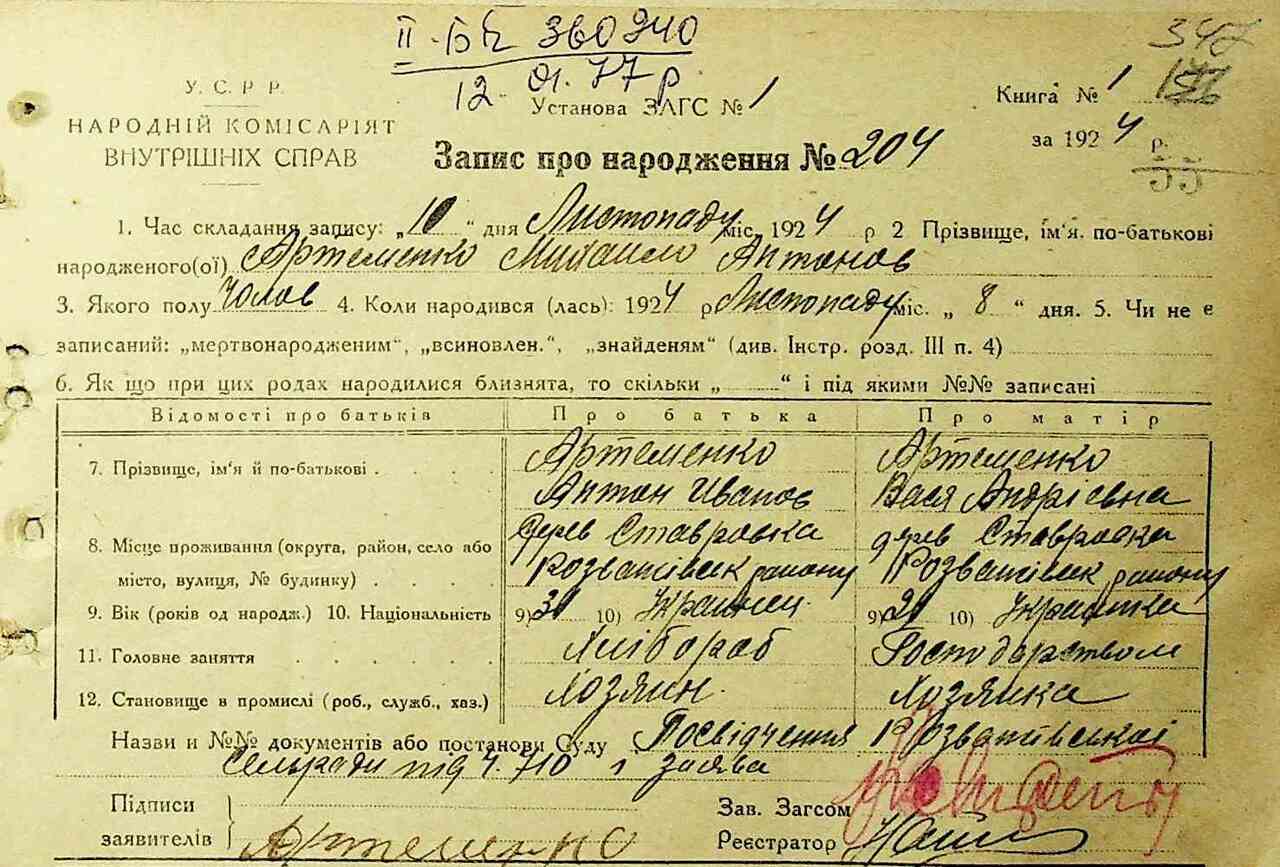 II-БК 360240
12.01.77 р
347
У. С. Р Р.
НАРОДНІЙ КОМІСАРІЯТ
ВНУТРІШНІХ СПРАВ
Установа ЗАГС № 1
Книга № 1
за 1924 р.
55
Запис про народження № 204
1. Час складання запису: „10" дня Листопаду міс. 1924 р 2 Прізвище, ім'я. по-батькові
народженого(ої) Артеменко Михайло Антонов
3. Якого полу Чолов 4. Коли народився (лась): 1924 р Листопаду міс. „ 8 " дня. 5. Чи не є
записаний: „мертвонародженим", „всиновлен.", „знайденям" (див. Інстр. розд. III п. 4)
6. Як що при цих родах народилися близнята, то скільки „ " і під якими №№ записані
Відомості про батьків Про батька Про матір
7. Прізвище, ім'я й по-батькові Артеменко Артеменко
Антон Иванов Вася Андріевна
8. Місце проживання (округа, район, село або дерев Ставровка дерев Ставровка
місто, вулиця, № будинку) Розватівськ району Розватівськ району
9. Вік (років од народж.) 10. Національність 9) 10) Украинец 9) 10) Украинка
11. Головне заняття Хлібороб Господарством
12. Становище в промислі (роб., служб., хаз.) Хозяин Хозяйка
Назви и №№ документів або постанови Суду Посвідчення Розватівської
Сельради під ч. 710 і заява
Підписи
заявителів Артеменко
Зав. Загсом
Реєстратор